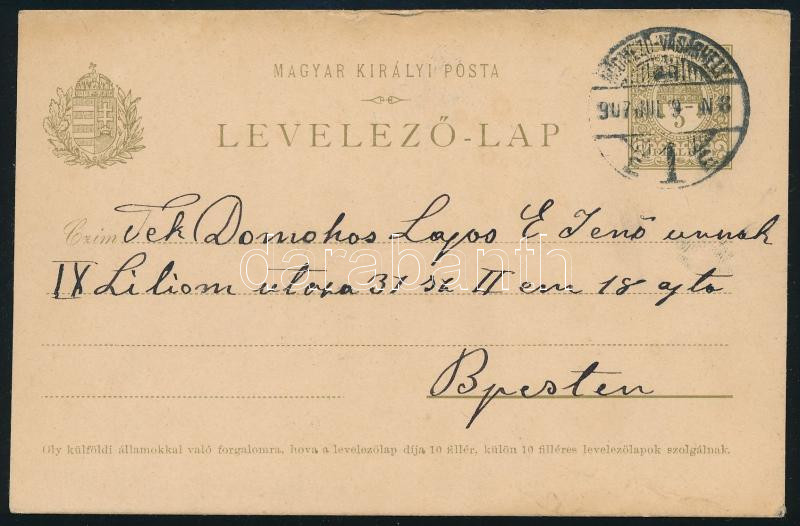 MAGYAR KIRÁLYI POSTA
LEVELEZŐ-LAP
HÓDMEZŐ-VÁSÁRHELY
907 JUL 9 N8
1
5
Czim Tek Domokos Lajos E Jenő urnak
IX Liliom utcza 31 sz II em 18 ajto
Bpesten
Oly külföldi államokkal való forgalomra, hova a levelezőlap díja 10 fillér, külön 10 filléres levelezőlapok szolgálnak.
darabanth